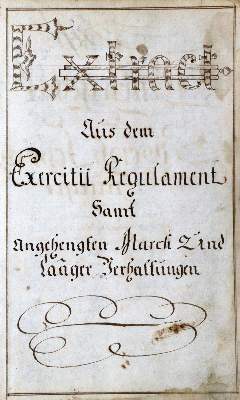 Extract
Aus dem
Exercitii Regulament
Samt
Angehengten March Und
Laager Verhaltungen